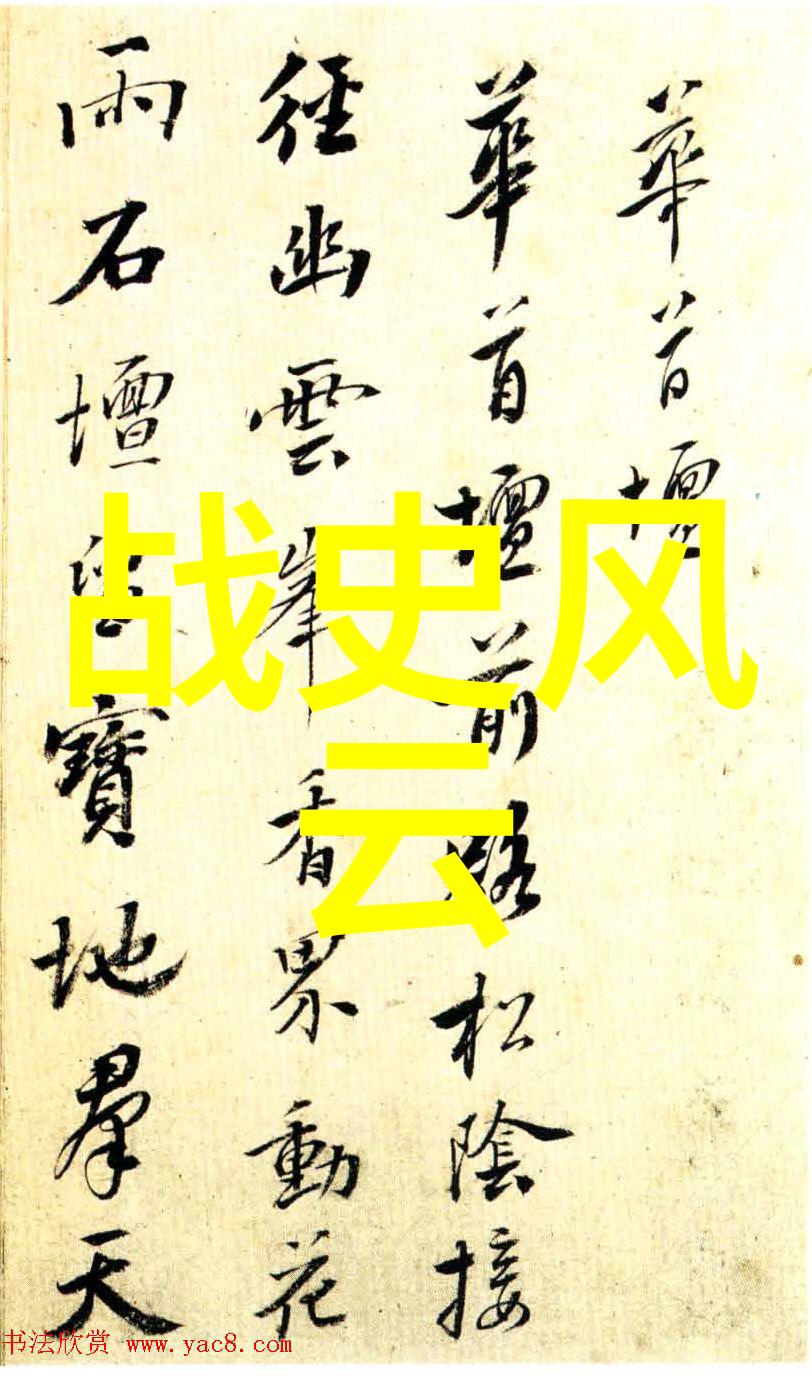 華首壇
華首壇前路松陰接
徑幽雲峯看界動花
雨石壇空寶地羣天
战史风
云
书法欣赏 www.yac8.com